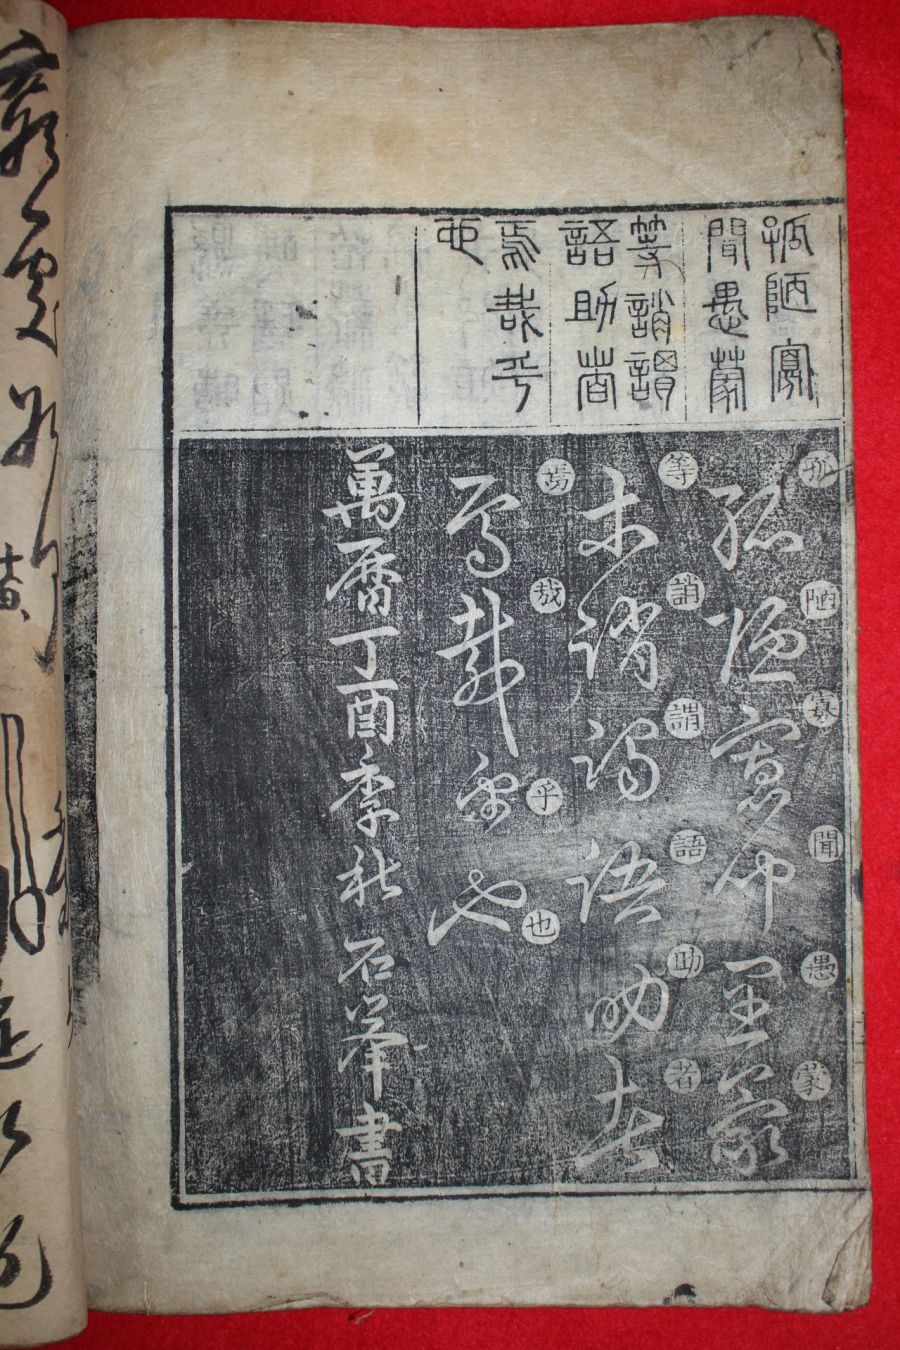 孤陋寡
聞愚蒙
等誚謂
語助者
焉哉乎
也
孤陋寡聞愚蒙
孤陋寡聞愚蒙
等誚謂語助者
等誚謂語助者
焉哉乎也
焉哉乎也
萬曆丁酉季秋石峯書